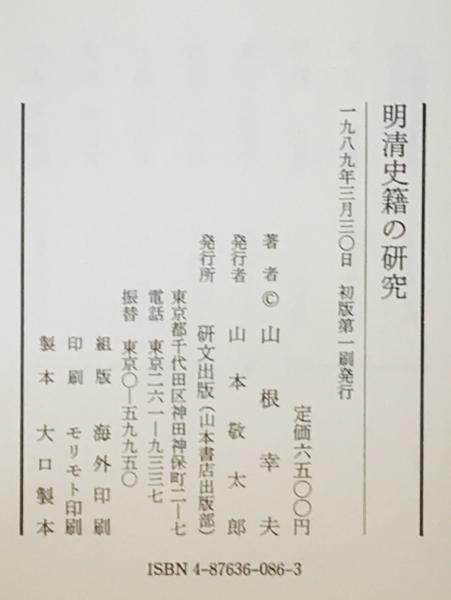 明清史籍の研究
一九八九年三月三〇日 初版第一刷発行
定価六五〇〇円
著者©山根幸夫
発行者 山本敬太郎
発行所 研文出版(山本書店出版部)
東京都千代田区神田神保町二―七
電話 東京二六一―九三三七
振替 東京〇―五九九五〇
組版 海外印刷
印刷 モリモト印刷
製本 大口製本
ISBN 4-87636-086-3